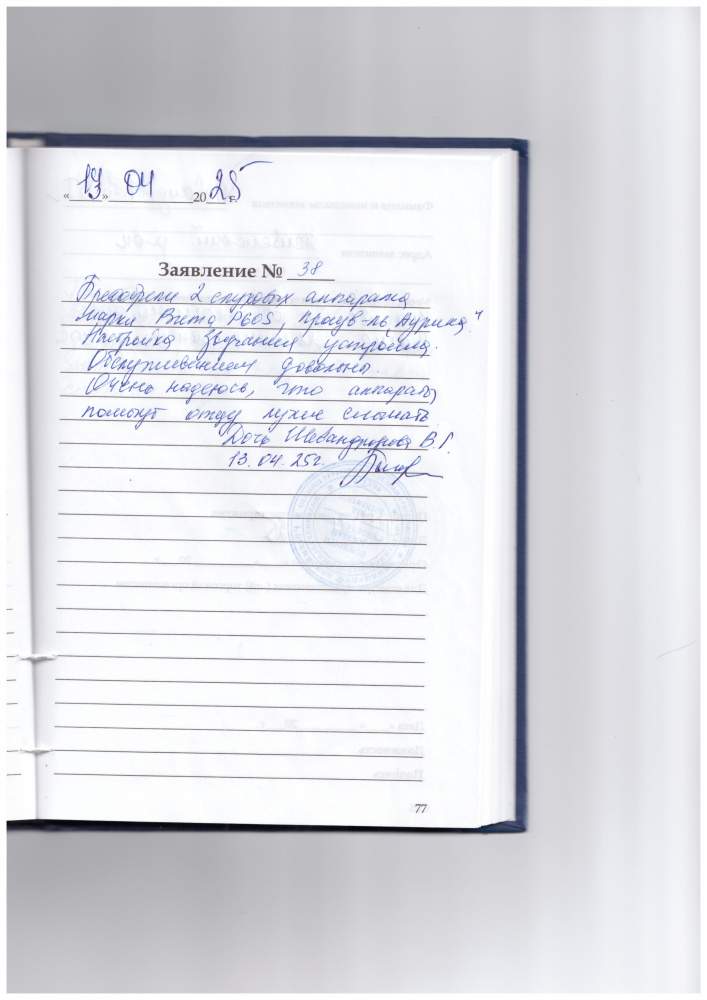 «13» 04 2025 г.
Заявление № 38
Приобрели 2 слуховых аппарата
марки Вита P60S, произв-ль „Аурика"
Настройка звучания устроила.
Обслуживанием довольны.
Очень надеюсь, что аппараты
помогут отцу лучше слышать
Дочь В.Г.
13.04.25г.
77